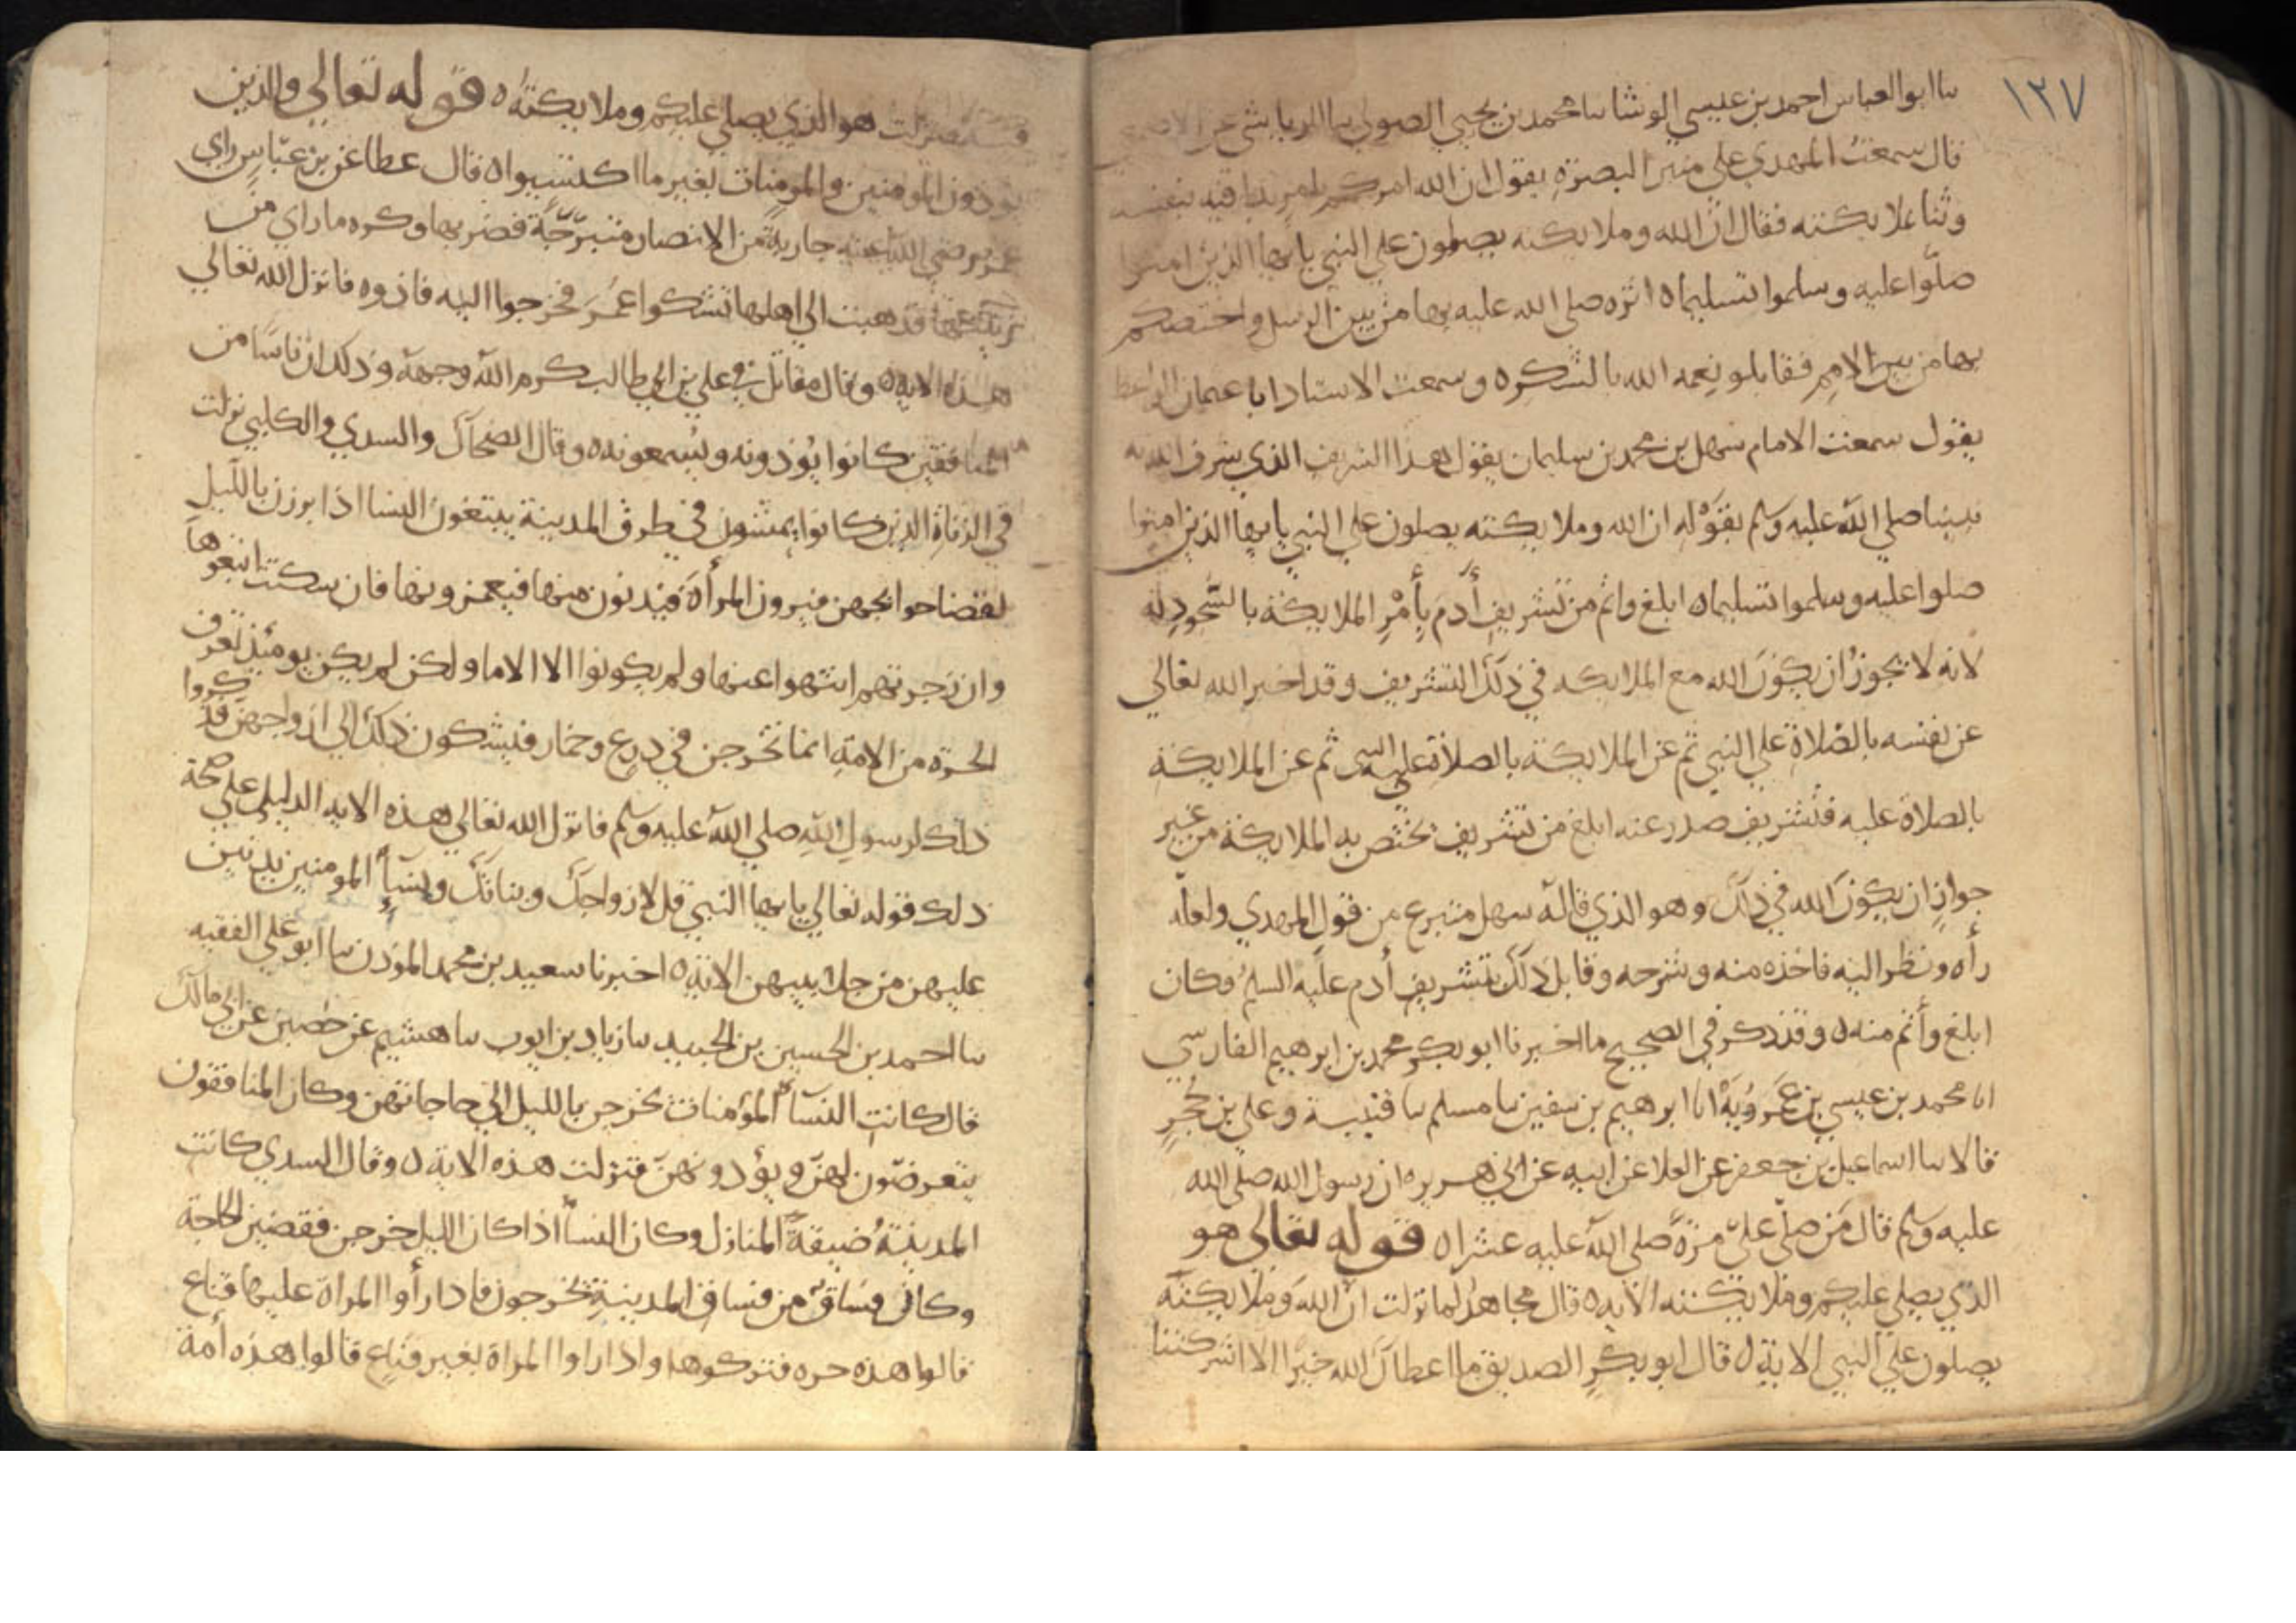 ١٣٧
ساابوالعباس احمد بن عيسي الوشا سا محمد بن يحيي الصولي سا الرياشي عن الاصمعي
قال سمعت المهدي علي منبر البصرة يقول ان الله امركم بامر بدا فيه بنفسه
وثنا بملايكته فقال ان الله وملايكته يصلون علي النبي يايها الذين امنوا
صلوا عليه وسلموا تسليما ه اثره صلي الله عليه بها من بين الرسل واختصكم
بها من بين الامم فقابلو نعمه الله بالشكر ه وسمعت الاستاد ابا عمان الواعظ
يقول سمعت الامام سهل بن محمد بن سليمان يقول هدا التشريف الذي شرف الله به
نبينا صلي الله عليه وسلم بقوله ان الله وملايكته يصلون علي النبي يايها الذين امنوا
صلوا عليه وسلموا تسليما ه ابلغ واتم من تشريف أدم بأمر الملايكة بالسجود له
لانه لا يجوز ان يكون الله مع الملايكه في ذلك التشريف وقد اخبر الله تعالي
عن نفسه بالصلاة علي النبي ثم عن الملايكة بالصلاة علي النبي ثم عن الملايكة
بالصلاة عليه فتشريف صدر عنه ابلغ من تشريف تختص به الملايكة من غير
جواز ان يكون الله في ذلك وهو الذي قاله سهل منتزع من قول المهدي ولعله
رأه ونظر اليه فاخذه منه وشرحه وقابل ذلك بتشريف أدم عليه السلم وكان
ابلغ وأتم منه ه وقد ذكر في الصحيح ما اخبرنا ابو بكر محمد بن ابرهيم الفارسي
انا محمد بن عيسي بن عمرويه انا ابرهيم بن سفين نا مسلم سا قتيبة وعلي بن حجر
قالا سا اسماعيل بن جعفر عن العلا عن ابيه عن ابي هريره ان رسول الله صلي الله
عليه وسلم قال من صلي علي مرة صلي الله عليه عشرا ه قوله تعالي هو
الذي يصلي عليكم وملايكته الايه ه قال مجاهد لما نزلت ان الله وملايكته
يصلون علي النبي الاية ه قال ابو بكر الصديق ما اعطاك الله خيرا الا اشركتنا
فيه فنزلت هو الذي يصلي عليكم وملايكته ه قوله تعالي والذين
يوذون المومنين والمومنات بغير ما اكتسبوا ه قال عطا عن بن عباس راي
عمر رضي الله عنه جارية من الانصار متبرجة فضربها وكره ماراي من
زينتها فذهبت الي اهلها تشكوا عمر فخرجوا اليه فاذوه فانزل الله تعالي
هذه الايه ه وقال مقاتل في علي بن ابي طالب كرم الله وجهه وذلك ان ناسا من
المنافقين كانوا يوذونه ويسمعونه ه وقال الضحاك والسدي والكلبي نزلت
في الزناة الذين كانوا يمشون في طرق المدينة يبتغون النسا اذا برزن بالليل
لقضا حوايجهن فيرون المرأة فيدنون منها فيغمزونها فان سكتت اتبعوها
وان زجرتهم انتهوا عنها ولم يكونوا الا الاما ولكن لم يكن يومئذ تعرف
الحرة من الامة انما تخرجن في درع وخمار فيشكون ذلك الي ازواجهن فذكروا
ذلك لرسول الله صلي الله عليه وسلم فانزل الله تعالي هذه الايه الدليل علي صحة
ذلك قوله تعالي يايها النبي قل لازواجك وبناتك ونسآ المومنين يدنين
عليهن من جلابيبهن الاية ه اخبرنا سعيد بن محمد الموذن سا ابو علي الفقيه
سا احمد بن الحسين بن الجنيد سا زياد بن ايوب سا هشيم عن حصين عن ابي مالك
قال كانت النسآ المؤمنات تخرجن بالليل الي حاجاتهن وكان المنافقون
يتعرضون لهن ويؤذونهن فنزلت هذه الاية ه وقال السدي كانت
المدينة ضيقة المنازل وكان النسآ اذا كان الليل خرجن فقضين الحاجة
وكان فساق من فساق المدينة تخرجون فاذا رأوا المراة عليها قناع
قالوا هذه حره فتركوها واذا راوا المراة بغير قناع قالوا هذه أمة